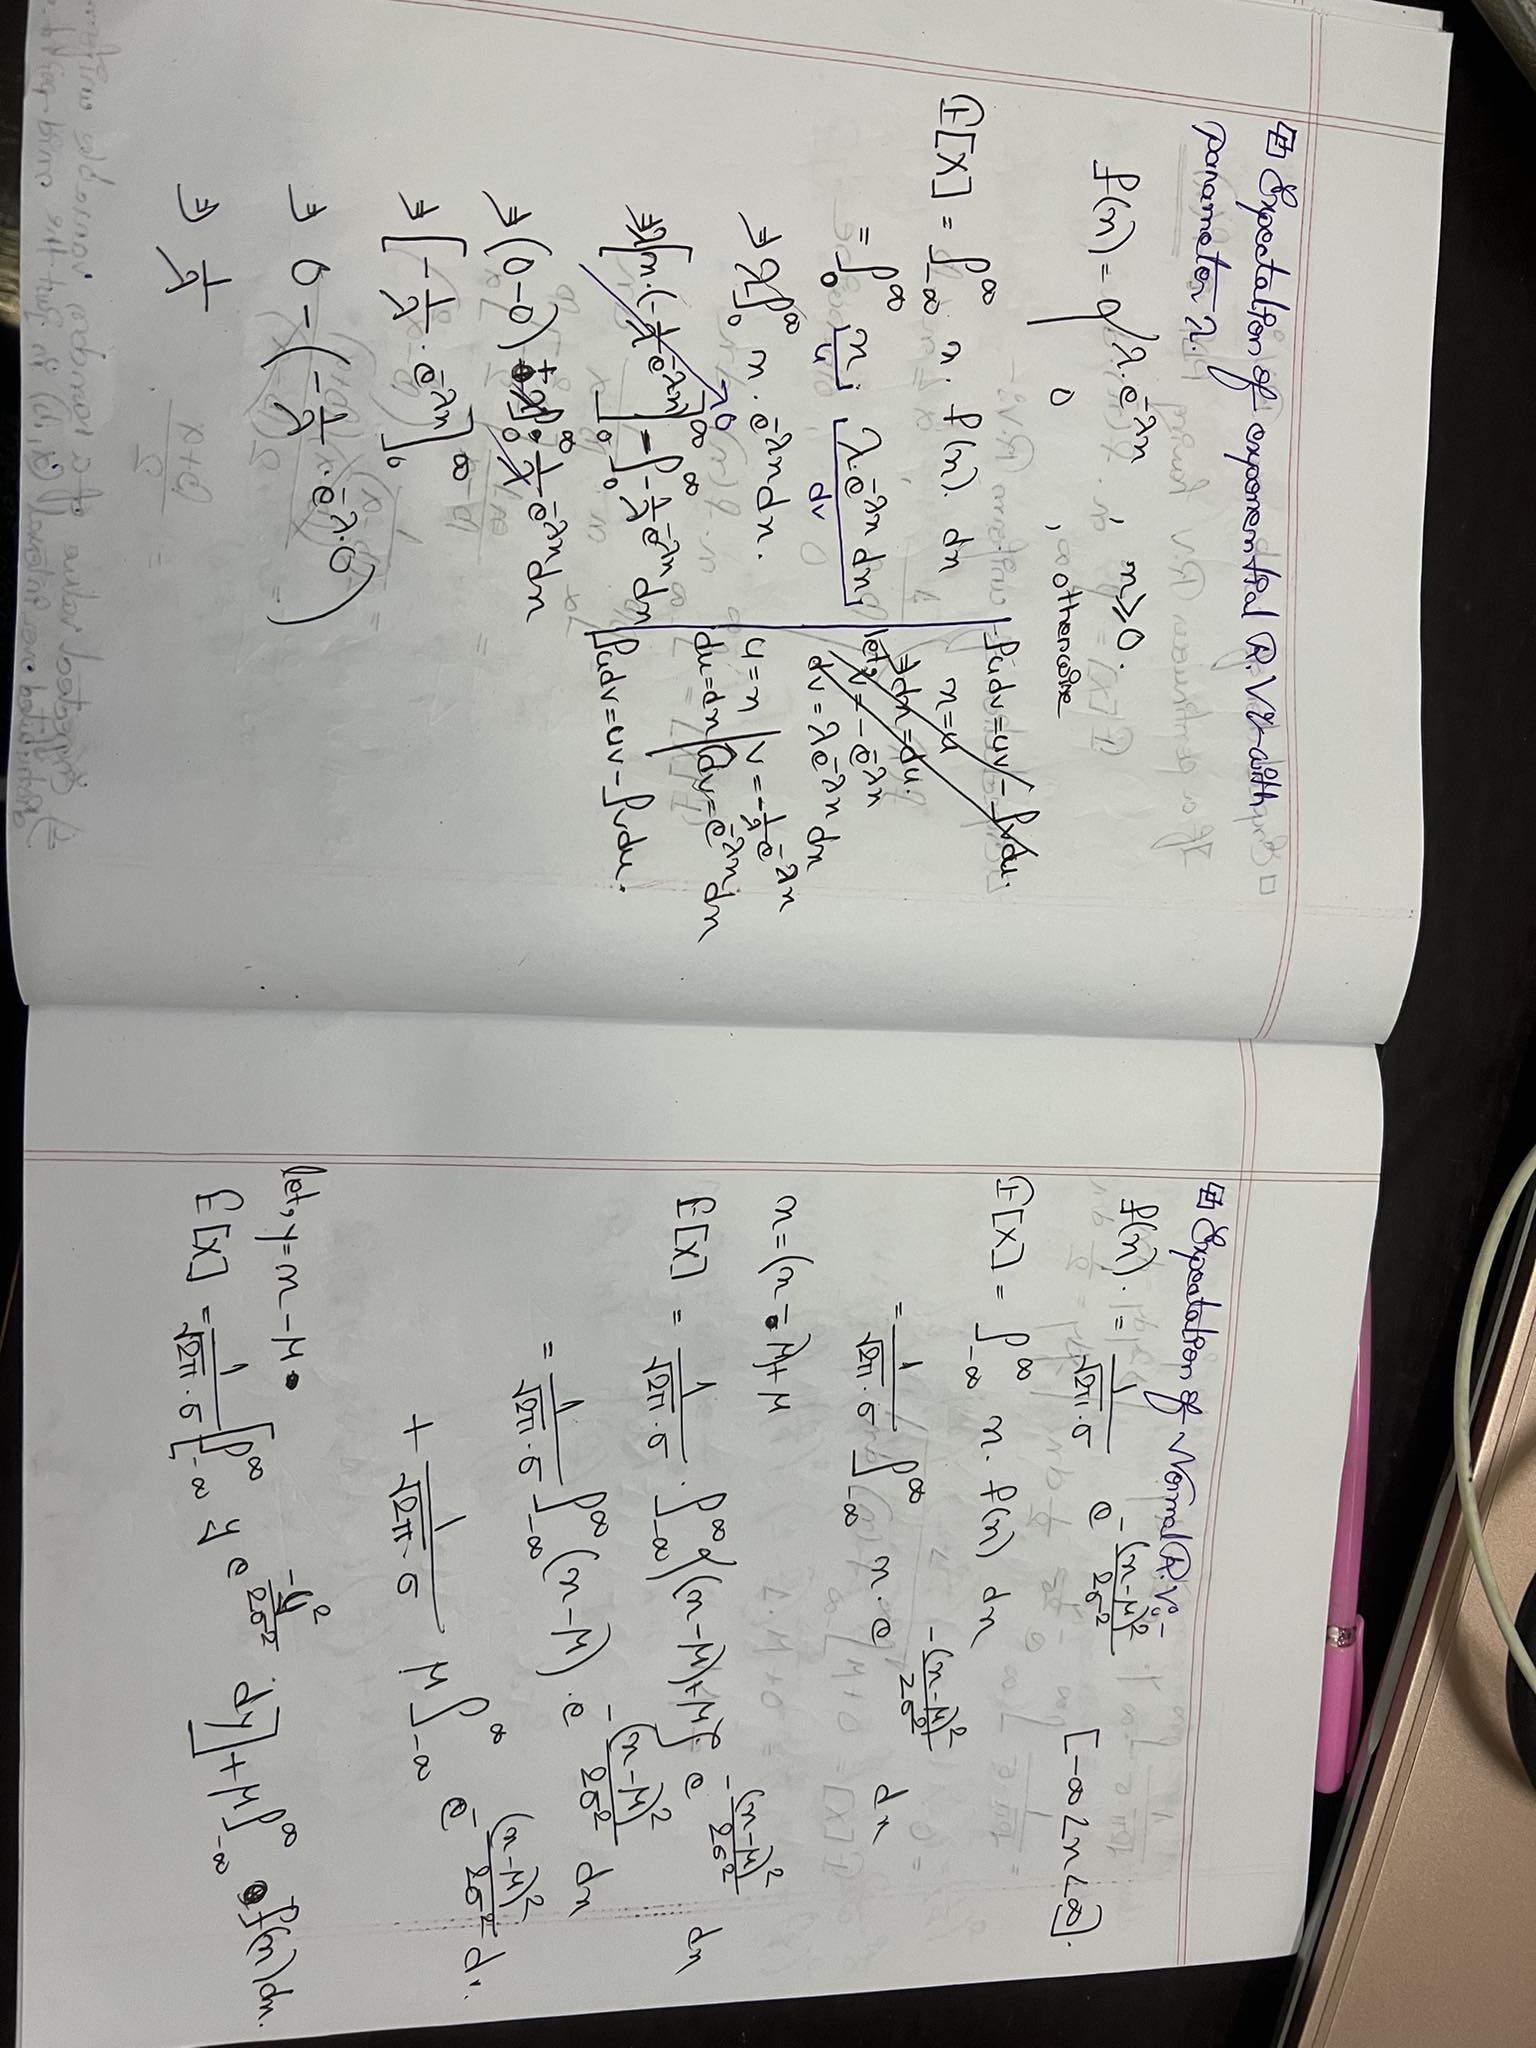 Expectation of exponential R.V :- with
parameter λ.
f(x) = { λ.e^-λx , x ≥ 0.
0 , otherwise
E[X] = ∫_-∞^∞ x. f(x). dx
= ∫_0^∞ x . λ.e^-λx dx
u dv
⇒ λ∫_0^∞ x . e^-λx dx.
⇒ λ[x.(-1/λ e^-λx)]_0^∞ - ∫_0^∞ -1/λ e^-λx dx
0
⇒ (0-0) + λ∫_0^∞ 1/λ e^-λx dx
⇒ [-1/λ . e^-λx]_0^∞
⇒ 0 - (-1/λ . e^-λ.0)
⇒ 1/λ
∫udv = uv - ∫vdu.
x = u
⇒ dx = du.
let, v = -e^-λx
dv = λe^-λx dx
u = x | v = -1/λ e^-λx
du = dx | dv = e^-λx dx
∫udv = uv - ∫vdu.
Expectation of Normal R.V :-
f(x). = 1/(√2π . σ) e^-(x-μ)²/2σ² [-∞ < x < ∞].
E[X] = ∫_-∞^∞ x. f(x) dx
= 1/(√2π . σ) ∫_-∞^∞ x . e^-(x-μ)²/2σ² dx
x = (x - μ) + μ
E[X] = 1/(√2π . σ) . ∫_-∞^∞ {(x-μ)+μ} e^-(x-μ)²/2σ² dx
= 1/(√2π . σ) ∫_-∞^∞ (x-μ) . e^-(x-μ)²/2σ² dx
+ 1/(√2π . σ) μ ∫_-∞^∞ e^-(x-μ)²/2σ²
let, y = x - μ
E[X] = 1/(√2π . σ) [∫_-∞^∞ y e^-y²/2σ² dy] + μ ∫_-∞^∞ f(x) dx.